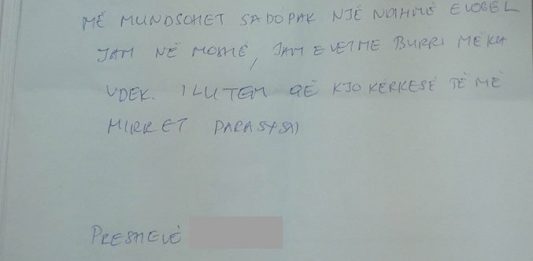 MË MUNDSOHET SADOPAK NJË NDIHMË E VOGEL
JAM NË MOSHË, JAM E VETME BURRI MË KA
VDEK. I LUTEM QË KJO KËRKESË TË MË
MIRRET PARASYSH
PRESHEVË